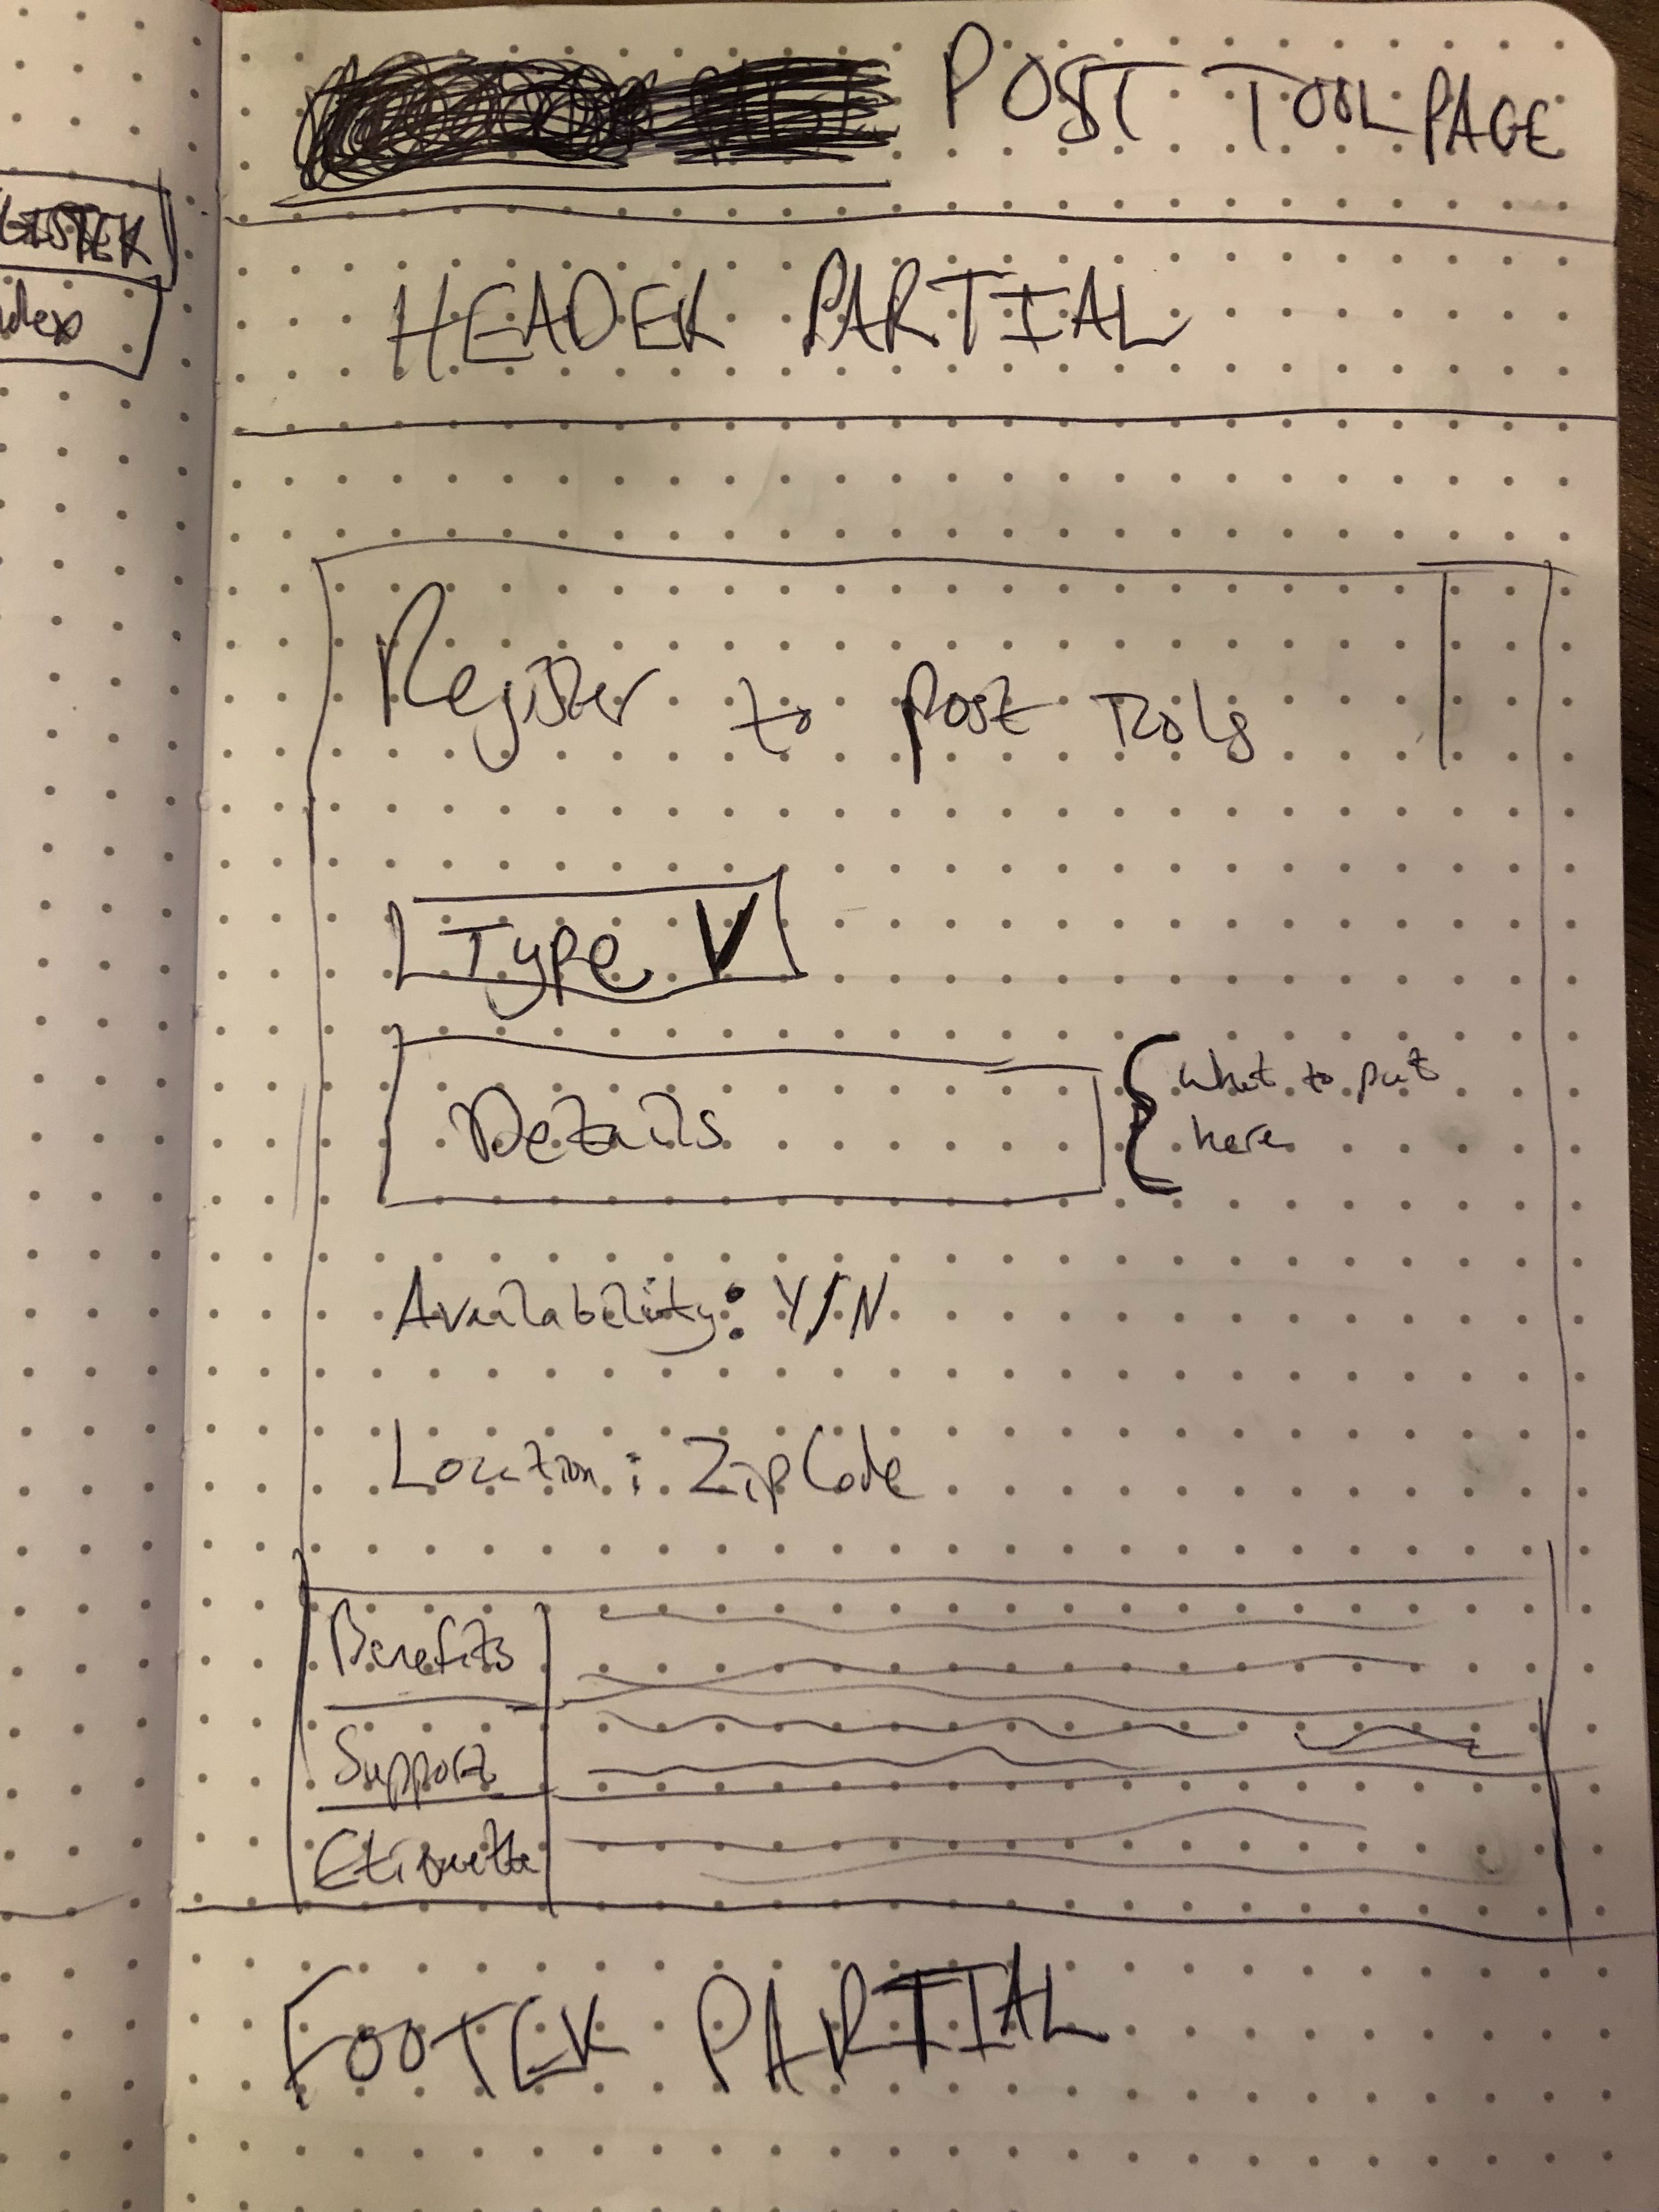 POST TOOL PAGE
HEADER PARTIAL
Register to post Tools
Type V
Details
What to put
here
Availability: Y/N
Location: Zip Code
Benefits
Support
Etiquette
FOOTER PARTIAL
ndex